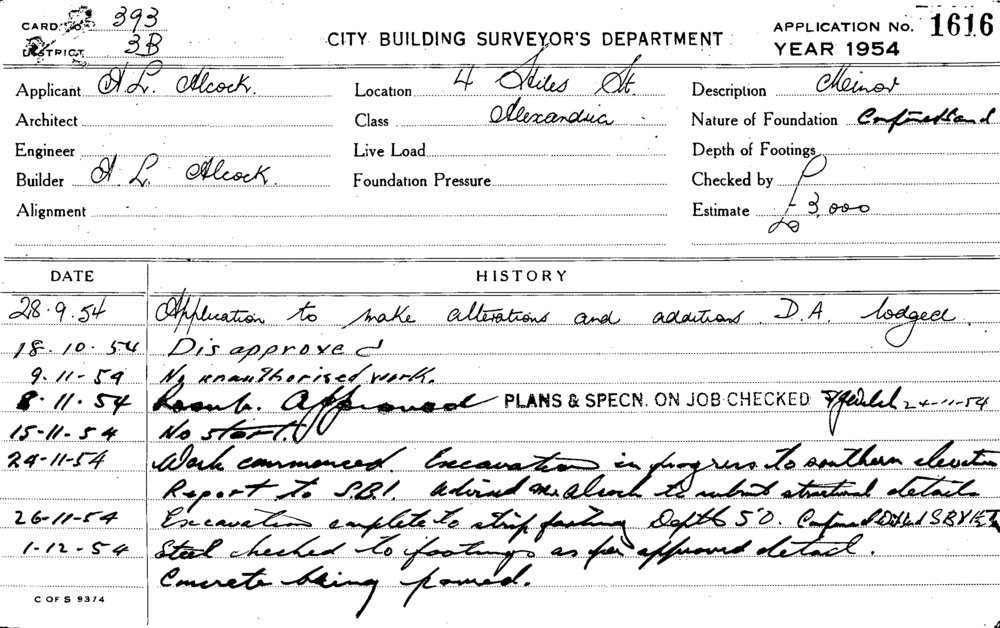 CARD No. 393
DISTRICT 3B
CITY BUILDING SURVEYOR'S DEPARTMENT
APPLICATION No. 1616
YEAR 1954
Applicant A L. Alcock. Location 4 Stiles St. Description Minor
Architect Class Alexandria Nature of Foundation Confined Sand
Engineer Live Load Depth of Footings
Builder A. L. Alcock. Foundation Pressure Checked by
Alignment Estimate £ 3,000
DATE HISTORY
28.9.54 Application to make alterations and additions. D.A. lodged.
18.10.54 Disapproved
9.11.54 No unauthorised work.
8.11.54 Approved PLANS & SPECN. ON JOB CHECKED 24-11-54
15-11-54 No start.
24-11-54 Work commenced. Excavation in progress to southern elevation
Report to S.B.I. Advised Mr Alcock to submit structural details
26-11-54 Excavation complete to strip footing Depth 5'0. Confined
1-12-54 Steel checked to footings as per approved detail.
Concrete being poured.
C OF S 9374